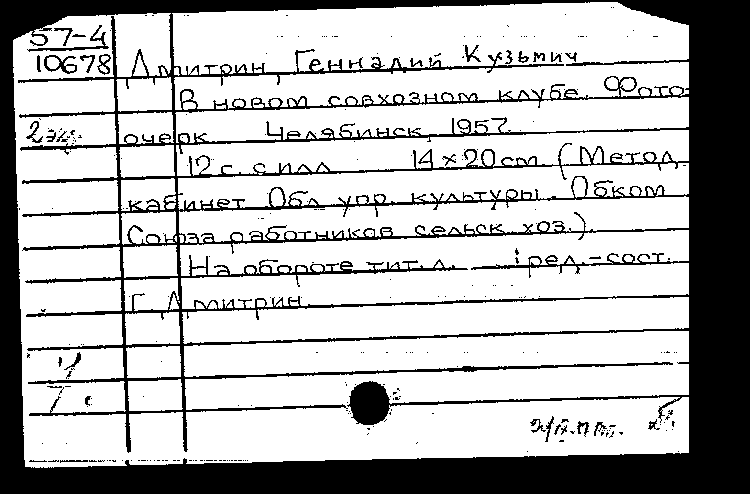 57-4
10678
Дмитрин, Геннадий Кузьмич
В новом совхозном клубе. Фото-
2 экз. очерк. Челябинск, 1957.
12 с. с илл. 14 × 20 см. (Метод.
кабинет Обл. упр. культуры. Обком
Союза работников сельск. хоз.).
На обороте тит. л. : ред.-сост.
Г. Дмитрин.